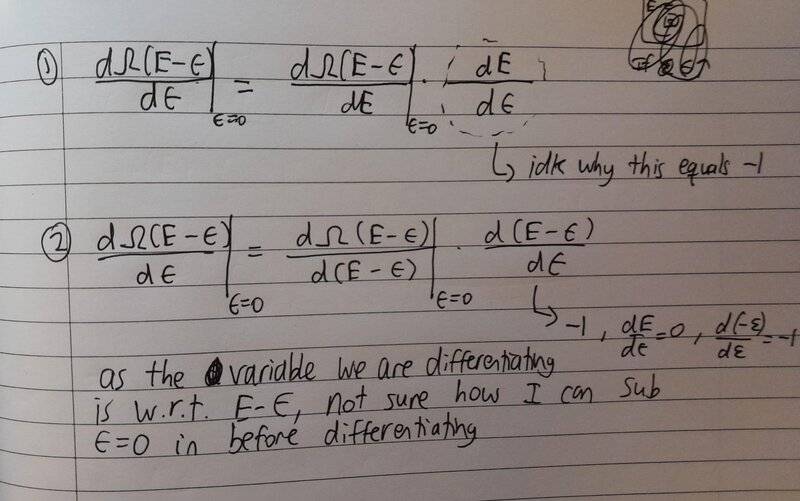 ① dΩ(E-ϵ)/dϵ |ϵ=0 = dΩ(E-ϵ)/dE |ϵ=0 · dE/dϵ
↳ idk why this equals -1
② dΩ(E-ϵ)/dϵ |ϵ=0 = dΩ(E-ϵ)/d(E-ϵ) |ϵ=0 · d(E-ϵ)/dϵ
↳ -1, dE/dϵ=0, d(-ε)/dε=-1
as the variable we are differentiating
is w.r.t. E-ϵ, not sure how I can sub
ϵ=0 in before differentiating